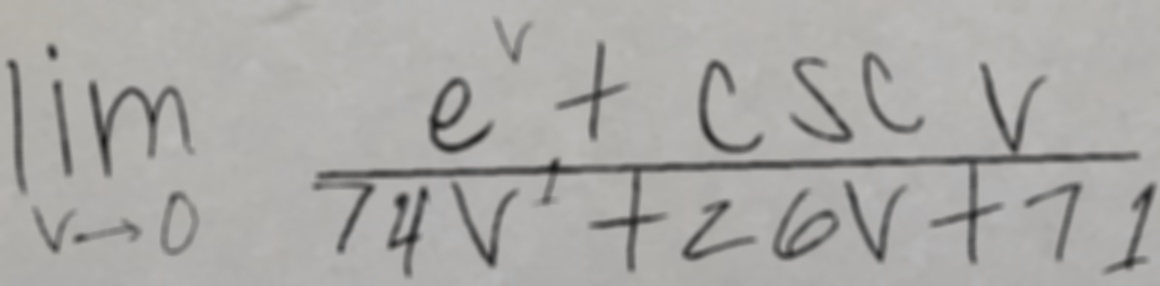 lim v→0 (e^v + csc v) / (74v^1 + 26v + 71)